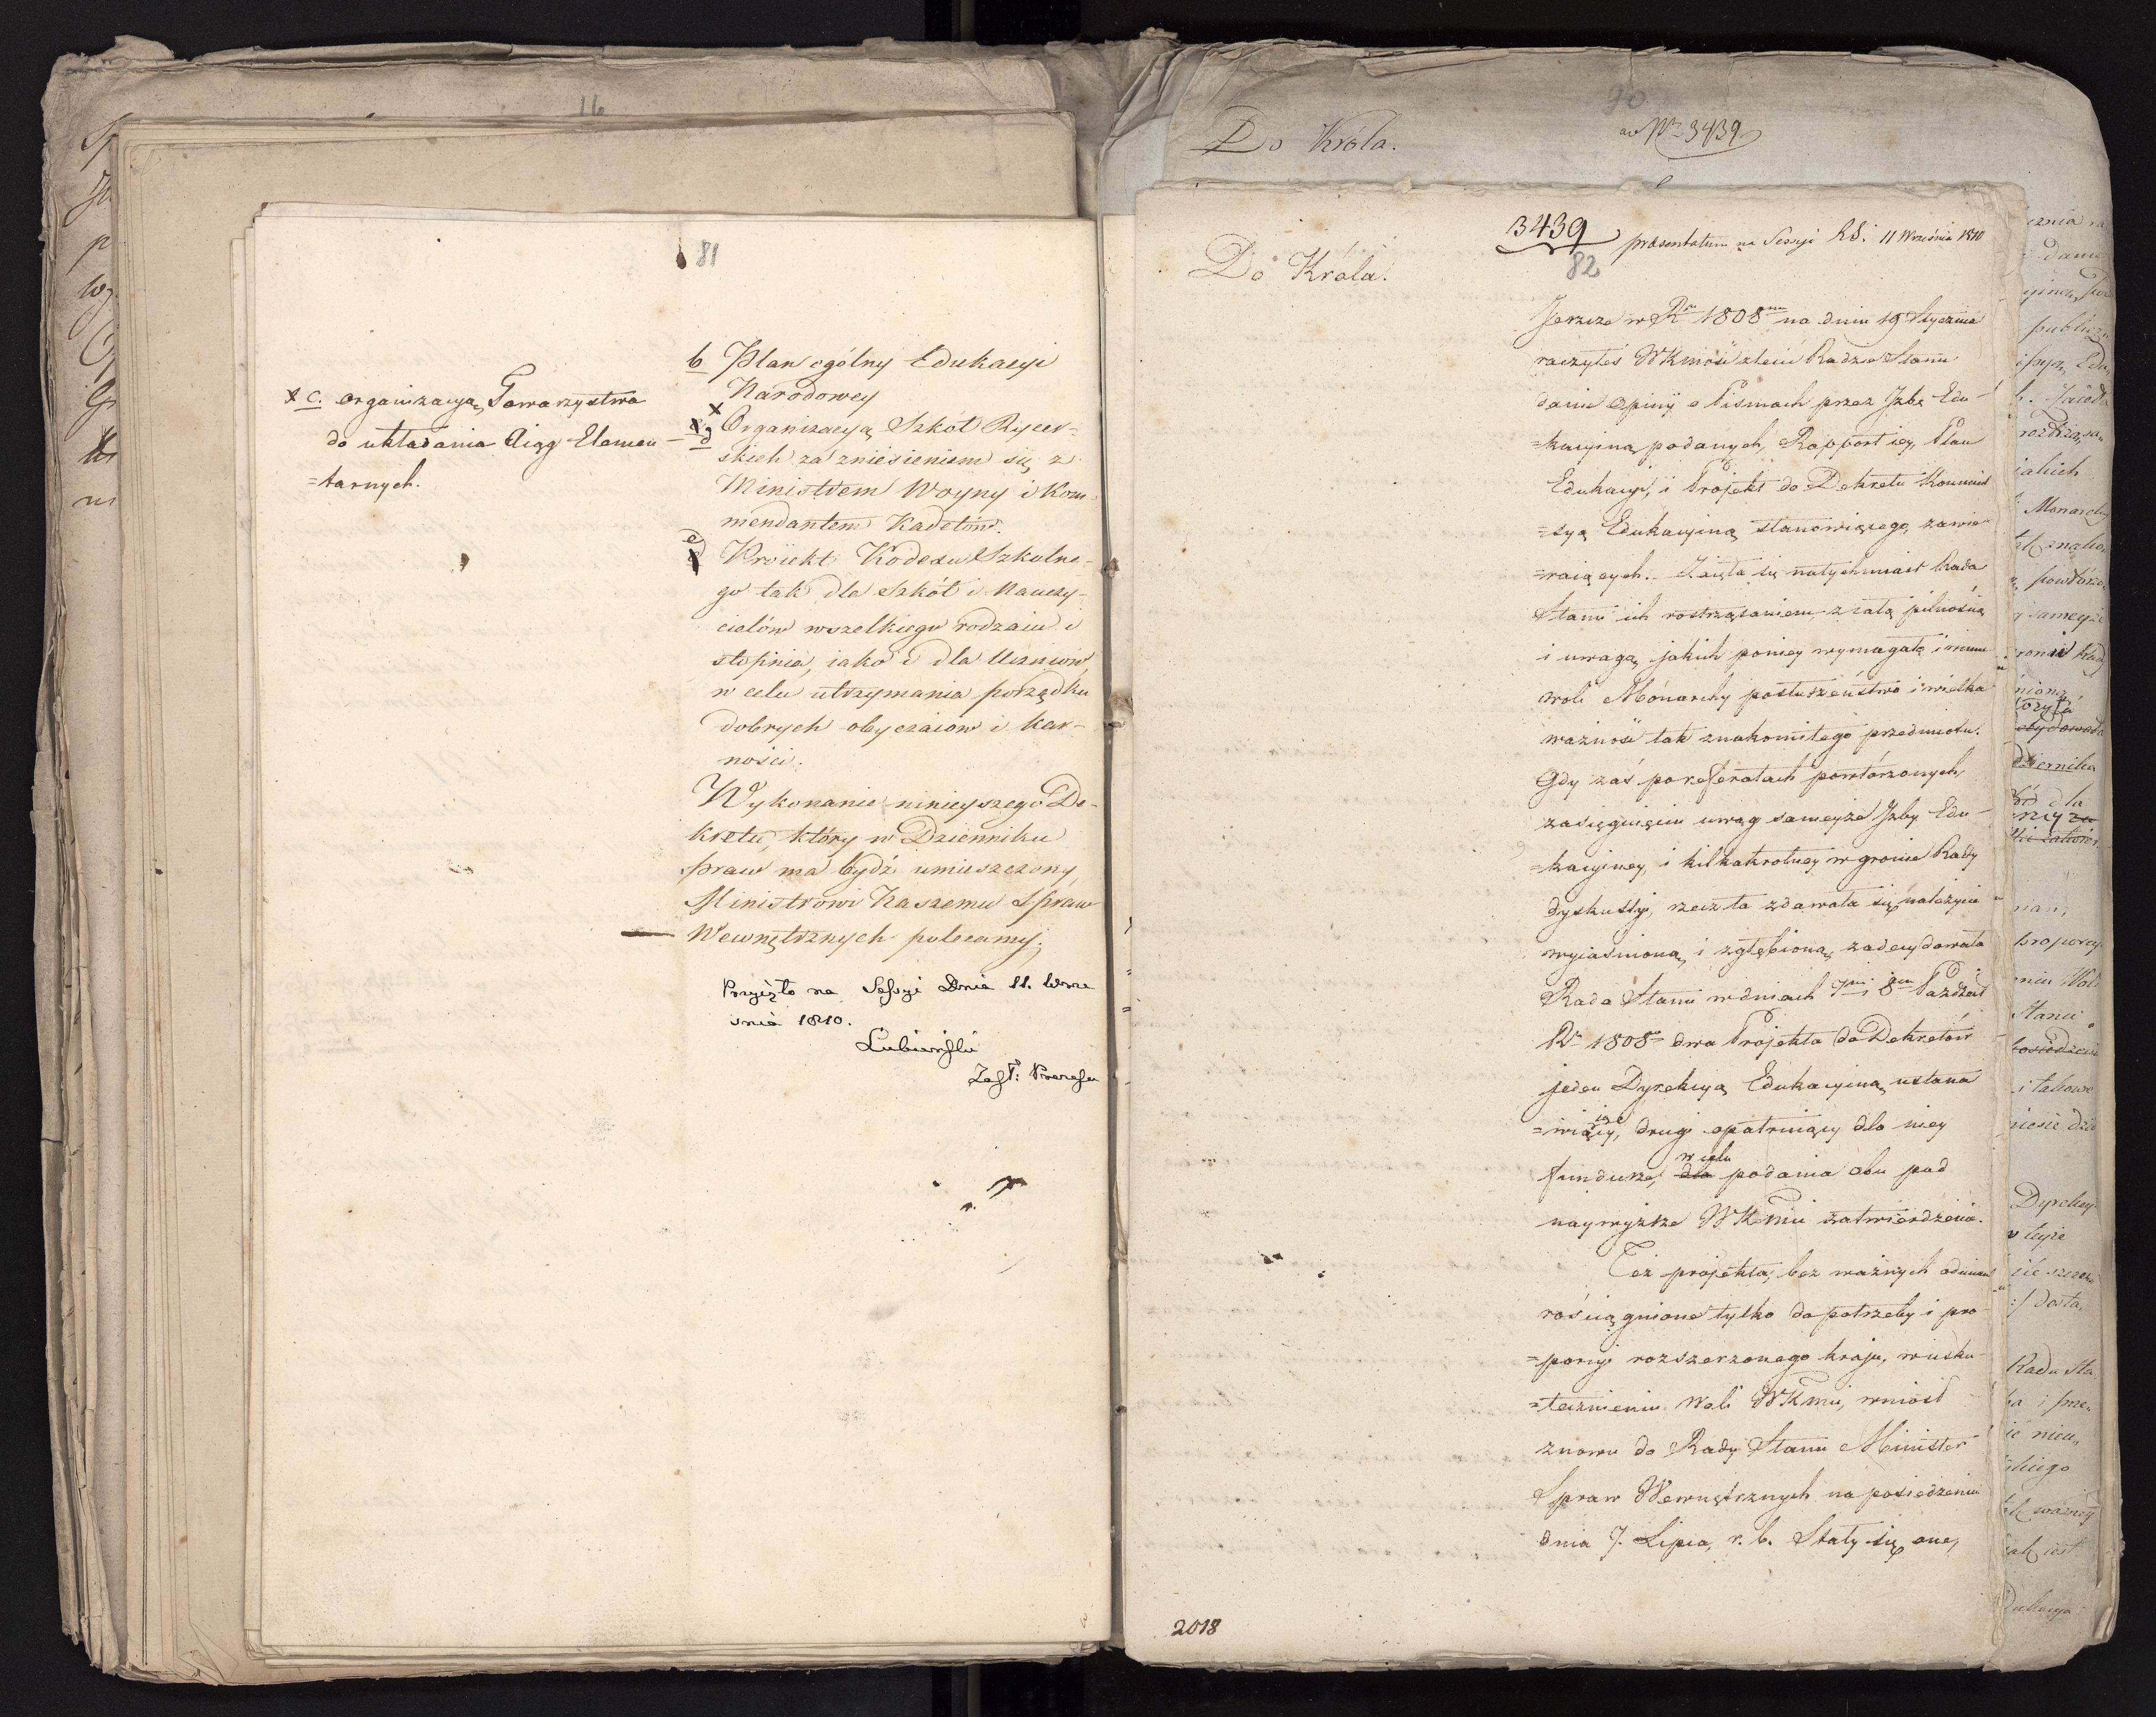 16
81
b Plan ogólny Edukacyi
Narodowey
x c. organizacyą Towarzystwa
do układania Xiąg Elemen-
=tarnych.
x
d Organizacyą Szkół Rycer=
skich za zniesieniem się z
Ministrem Woyny i Kom-
mendantem Kadetów.
e Proiekt Kodexu Szkolne-
go tak dla Szkół i Nauczy-
cielów wszelkiego rodzaiu i
stopnia, iako i dla Uczniów,
w celu utrzymania porządku
dobrych obyczaiów i kar-
ności.
Wykonanie ninieyszego De-
kretu, który w Dzienniku
praw ma bydź umieszczony,
Ministrowi Naszemu Spraw
Wewnętrznych polecamy.
Przyięto na Sessyi Dnia 11. Wrze
śnia 1810.
Lubieński
Zast: Prezesa
90
Do Króla.
ad Nr 3439
3439
præsentatum na Sessyi RS. 11 Września 1810
82
Do Króla.
Jeszcze w Rku 1808m na dniu 19 Stycznia
raczyłeś WKMość zlecić Radzie Stanu
danie opinij o Pismach przez Jzbę Edu-
=kacyiną podanych, Rapport iey, Plan
Edukacyi, i Projekt do Dekretu Kommis
=syą Edukacyiną stanowiącego, zawie-
=raiących. Zaięła się natychmiast Rada
Stanu ich rostrząsaniem z całą pilnością
i uwagą, jakich poniey wymagały i winne
woli Monarchy posłuszeństwo i wielka
ważność tak znakomitego przedmiotu.
Gdy zaś po referatach powtórzonych,
zasięgnięciu uwag sameyże Jzby Edu-
=kacyiney, i kilkakrotney w gronie Rady
dyskussyi, rzecz ta zdawała się należycie
wyiaśnioną, i zgłębioną, zadecydowała
Rada Stanu w dniach 7m i 8m Paździer
Rku 1808m dwa Projekta do Dekretów
jeden Dyrekcyą Edukacyiną ustana
=wiący, drugi opatruiący dla niey
fundusze, w celu podania obu pod
naywyższe WKMci zatwierdzenie.
Też projekta, bez ważnych odmian
rościągnione tylko do potrzeby i pro-
=porcyi rozszerzonego kraju, w usku-
=tecznieniu Woli WKMci, wniósł
znowu do Rady Stanu Minister
Spraw Wewnętrznych na posiedzeniu
dnia 7. Lipca, r. b. Stały się one,
2018